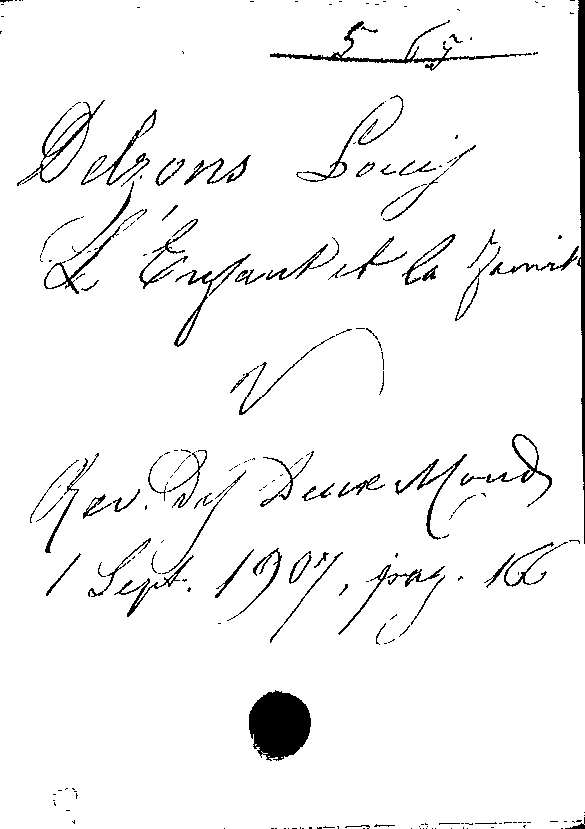 Delzons Louis
L'Enfant et la Famille
V
Rev. Des Deux Monds
1 Sept. 1907, pag. 166